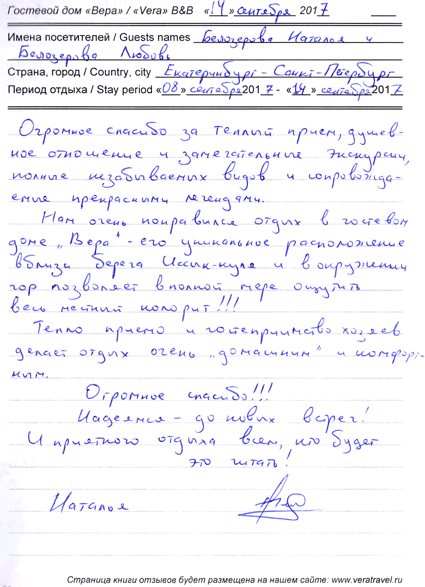 Гостевой дом «Вера» / «Vera» B&B «14» сентября 2017
Имена посетителей / Guests names Белозерова Наталья и
Белозерова Любовь
Страна, город / Country, city Екатеринбург - Санкт-Петербург
Период отдыха / Stay period «08» сентября 2017 - «14» сентября 2017
Огромное спасибо за теплый прием, душев-
ное отношение и замечательные экскурсии,
полные незабываемых видов и сопровожда-
емые прекрасными легендами.
Нам очень понравился отдых в гостевом
доме „Вера" - его уникальное расположение
вблизи берега Иссык-куля и в окружении
гор позволяет в полной мере ощутить
весь местный колорит!!!
Тепло приема и гостеприимство хозяев
делает отдых очень „домашним" и комфорт-
ным.
Огромное спасибо!!!
Надеемся - до новых встреч!
И приятного отдыха всем, кто будет
это читать!
Наталья
Страница книги отзывов будет размещена на нашем сайте: www.veratravel.ru